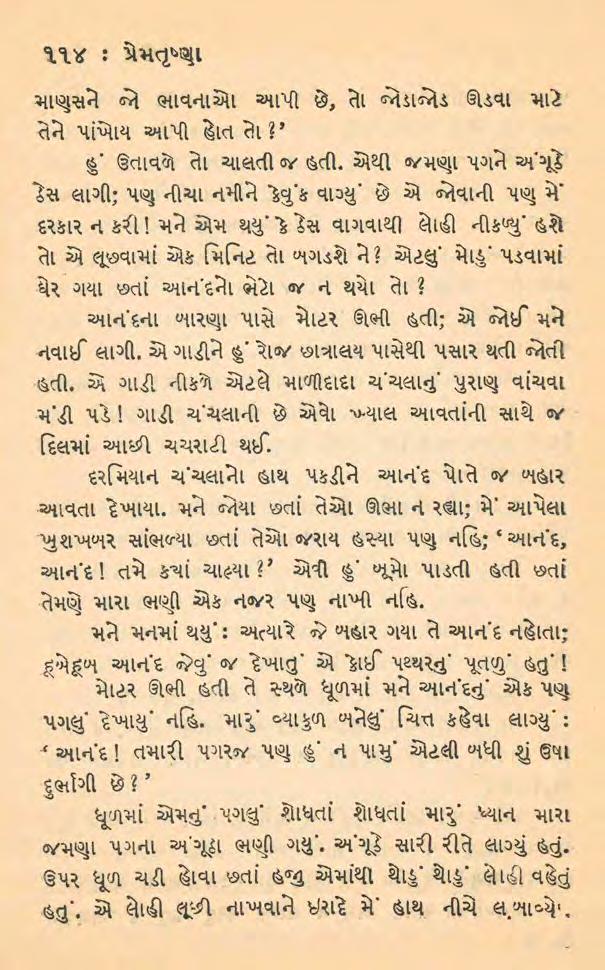 ૧૧૪ : પ્રેમતૃષ્ણા
માણસને જો ભાવનાઓ આપી છે, તો જોડાજોડ ઊડવા માટે
તેને પાંખોય આપી હોત તો ?’
હું ઉતાવળે તો ચાલતી જ હતી. એથી જમણા પગને અંગૂઠે
ઠેસ લાગી; પણ નીચા નમીને કેવુંક વાગ્યું છે એ જોવાની પણ મેં
દરકાર ન કરી! મને એમ થયું કે ઠેસ વાગવાથી લોહી નીકળ્યું હશે
તો એ લૂછવામાં એક મિનિટ તો બગડશે ને? એટલું મોડું પડવામાં
ઘેર ગયા છતાં આનંદનો ભેટો જ ન થયો તો ?
આનંદના બારણા પાસે મોટર ઊભી હતી; એ જોઈ મને
નવાઈ લાગી. એ ગાડીને હું રોજ છાત્રાલય પાસેથી પસાર થતી જોતી
હતી. એ ગાડી નીકળે એટલે માળીદાદા ચંચલાનું પુરાણ વાંચવા
મંડી પડે! ગાડી ચંચલાની છે એવો ખ્યાલ આવતાંની સાથે જ
દિલમાં આછી ચચરાટી થઈ.
દરમિયાન ચંચલાનો હાથ પકડીને આનંદ પોતે જ બહાર
આવતા દેખાયા. મને જોયા છતાં તેઓ ઊભા ન રહ્યા; મેં આપેલા
ખુશખબર સાંભળ્યા છતાં તેઓ જરાય હસ્યા પણ નહિ; ‘આનંદ,
આનંદ! તમે ક્યાં ચાલ્યા ?’ એવી હું બૂમો પાડતી હતી છતાં
તેમણે મારા ભણી એક નજર પણ નાખી નહિ.
મને મનમાં થયું : અત્યારે જે બહાર ગયા તે આનંદ નહોતા;
હૂબેહૂબ આનંદ જેવું જ દેખાતું એ કોઈ પથ્થરનું પૂતળું હતું !
મોટર ઊભી હતી તે સ્થળે ધૂળમાં મને આનંદનું એક પણ
પગલું દેખાયું નહિ. મારું વ્યાકુળ બનેલું ચિત્ત કહેવા લાગ્યું :
‘ આનંદ! તમારી પગરજ પણ હું ન પામું એટલી બધી શું ઉષા
દુર્ભાગી છે ? ’
ધૂળમાં એમનું પગલું શોધતાં શોધતાં મારું ધ્યાન મારા
જમણા પગના અંગૂઠા ભણી ગયું. અંગૂઠે સારી રીતે લાગ્યું હતું.
ઉપર ધૂળ ચડી હોવા છતાં હજુ એમાંથી થોડું થોડું લોહી વહેતું
હતું. એ લોહી લૂછી નાખવાને ઇરાદે મેં હાથ નીચે લંબાવ્યો.